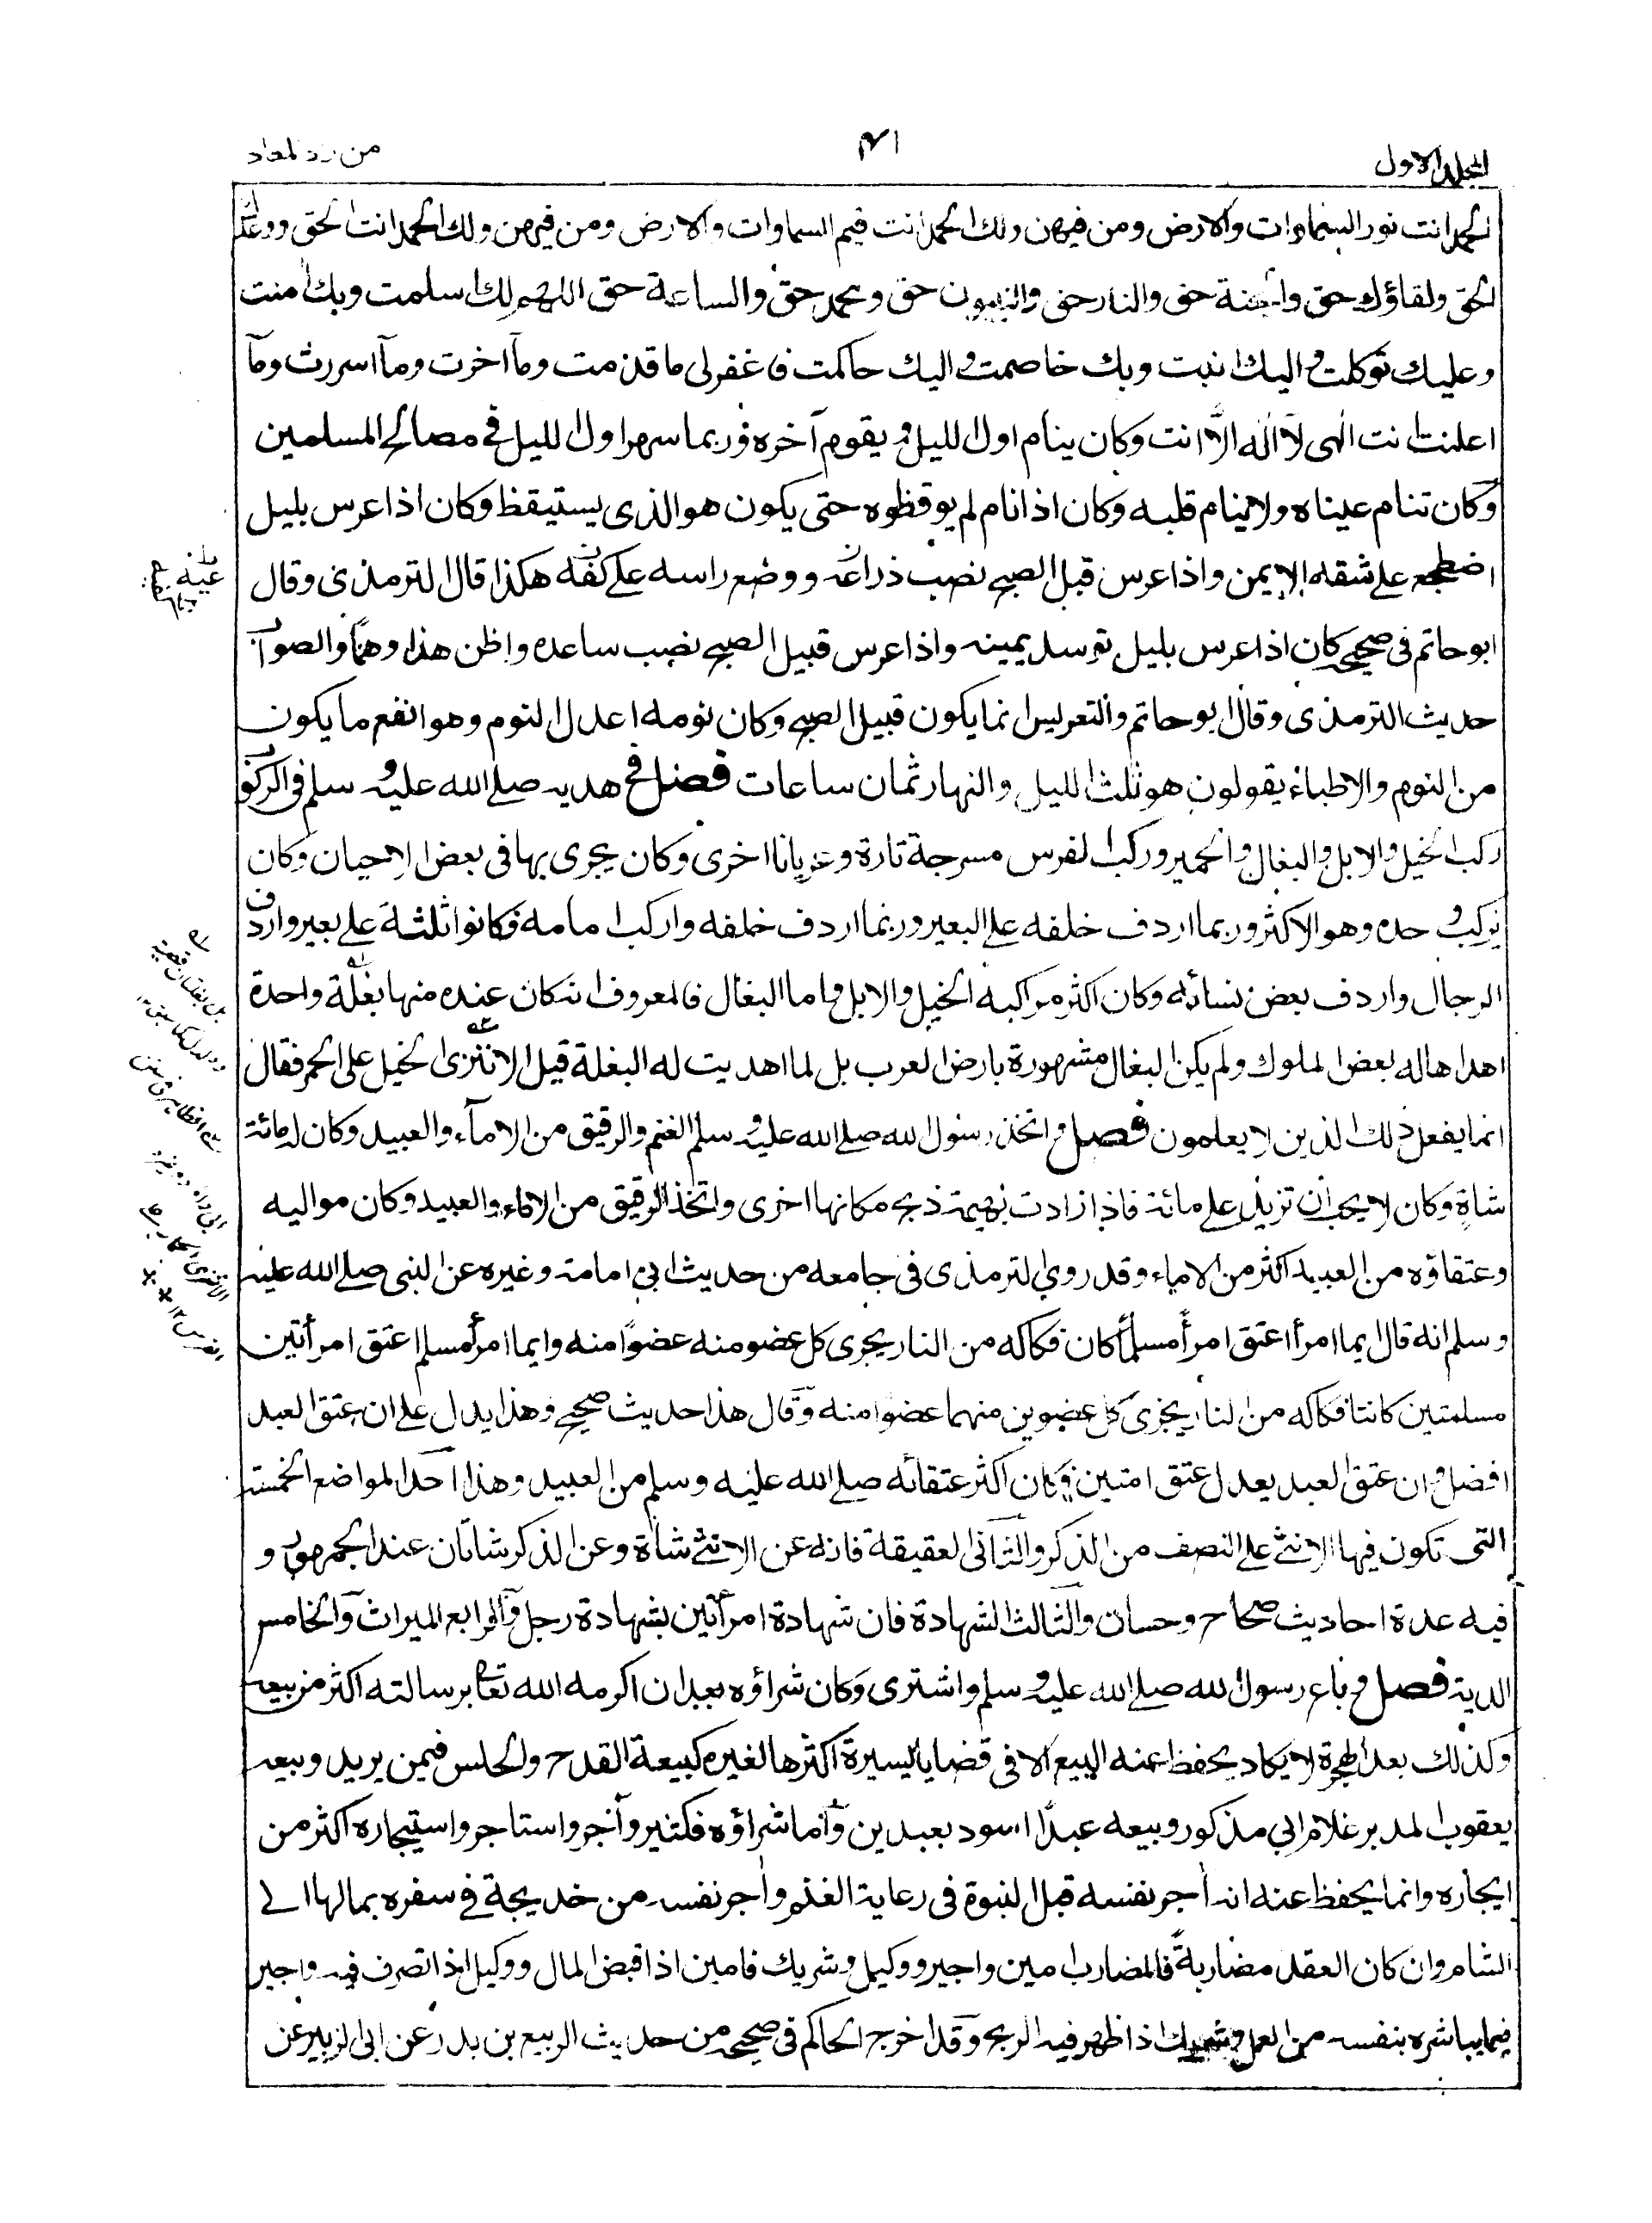 المجلد الاول
٤١
من زاد المعاد
الحمد انت نور السماوات والارض ومن فيهن ولك الحمد انت قيم السماوات والارض ومن فيهن ولك الحمد انت الحق ووعدك
الحق ولقاؤك حق والجنة حق والنار حق والنبيون حق ومحمد حق والساعة حق اللهم لك اسلمت وبك امنت
وعليك توكلت واليك انبت وبك خاصمت واليك حاكمت فاغفر لى ما قدمت وما اخرت وما اسررت وما
اعلنت انت الهى لا اله الا انت وكان ينام اول الليل ويقوم آخره وربما سهر اول الليل فى مصالح المسلمين
وكان تنام عيناه ولا ينام قلبه وكان اذا نام لم يوقظوه حتى يكون هو الذى يستيقظ وكان اذا عرس بليل
اضطجع على شقه الايمن واذا عرس قبل الصبح نصب ذراعه ووضع راسه على كفه هكذا قال الترمذى وقال
ابو حاتم فى صحيحه كان اذا عرس بليل توسد يمينه واذا عرس قبيل الصبح نصب ساعده واظن هذا وهمًا والصواب
حديث الترمذى وقال ابو حاتم والتعريس انما يكون قبيل الصبح وكان نومه اعدل النوم وهو انفع ما يكون
من النوم والاطباء يقولون هو ثلث الليل والنهار ثمان ساعات فصل فى هديه صلى الله عليه وسلم فى الركوب
ركب الخيل والابل والبغال والحمير وركب الفرس مسرجة تارة وعريانا اخرى وكان يجرى بها فى بعض الاحيان وكان
يركب وحده وهو الاكثر وربما اردف خلفه على البعير وربما اردف خلفه واركب امامه فكانوا ثلثة على بعير واردف
الرجال واردف بعض نسائه وكان اكثر مراكبه الخيل والابل واما البغال فالمعروف انه كان عنده منها بغلة واحدة
اهداها له بعض الملوك ولم يكن البغال مشهورة بارض العرب بل لما اهديت له البغلة قيل الا ننزى الخيل على الحمر فقال
انما يفعل ذلك الذين لا يعلمون فصل واتخذ رسول الله صلى الله عليه وسلم الغنم والرقيق من الاماء والعبيد وكان له مائة
شاة وكان لا يحب ان تزيد على مائة فاذا زادت بهيمة ذبح مكانها اخرى واتخذ الرقيق من الاماء والعبيد وكان مواليه
وعتقاؤه من العبيد اكثر من الاماء وقد روى الترمذى فى جامعه من حديث ابى امامة وغيره عن النبى صلى الله عليه
وسلم انه قال ايما امرأ اعتق امرأً مسلمًا كان فكاكه من النار يجزى كل عضو منه عضوًا منه وايما امرأ مسلم اعتق امرأتين
مسلمتين كانتا فكاكه من النار يجزى كل عضوين منهما عضوا منه وقال هذا حديث صحيح وهذا يدل على ان عتق العبد
افضل وان عتق العبد يعدل عتق امتين فكان اكثر عتقائه صلى الله عليه وسلم من العبيد وهذا احد المواضع الخمسة
التى تكون فيها الانثى على النصف من الذكر والثانى العقيقة فانه عن الانثى شاة وعن الذكر شاتان عند الجمهور و
فيه عدة احاديث صحاح وحسان والثالث الشهادة فان شهادة امرأتين بشهادة رجل والرابع الميراث والخامس
الدية فصل وباع رسول الله صلى الله عليه وسلم واشترى وكان شراؤه بعد ان اكرمه الله تعالى برسالته اكثر من بيعه
وكذلك بعد الهجرة لا يكاد يحفظ عنه البيع الا فى قضايا يسيرة اكثرها لغيره كبيعة القدح والحلس فيمن يزيد وبيعه
يعقوب المدبر غلام ابى مذكور وبيعه عبدًا اسود بعبدين واما شراؤه فكثير وآجر واستاجر واستيجاره اكثر من
ايجاره وانما يحفظ عنه انه اٰجر نفسه قبل النبوة فى رعاية الغنم واٰجر نفسه من خديجة فى سفره بمالها الى
الشام وان كان العقد مضاربةً فالمضارب امين واجير ووكيل وشريك فامين اذا قبض المال ووكيل اذا تصرف فيه واجير
فيما يباشره بنفسه من العمل وشريك اذا ظهر فيه الربح وقد اخرج الحاكم فى صحيحه من حديث الربيع بن بدر عن ابى الزبير عن